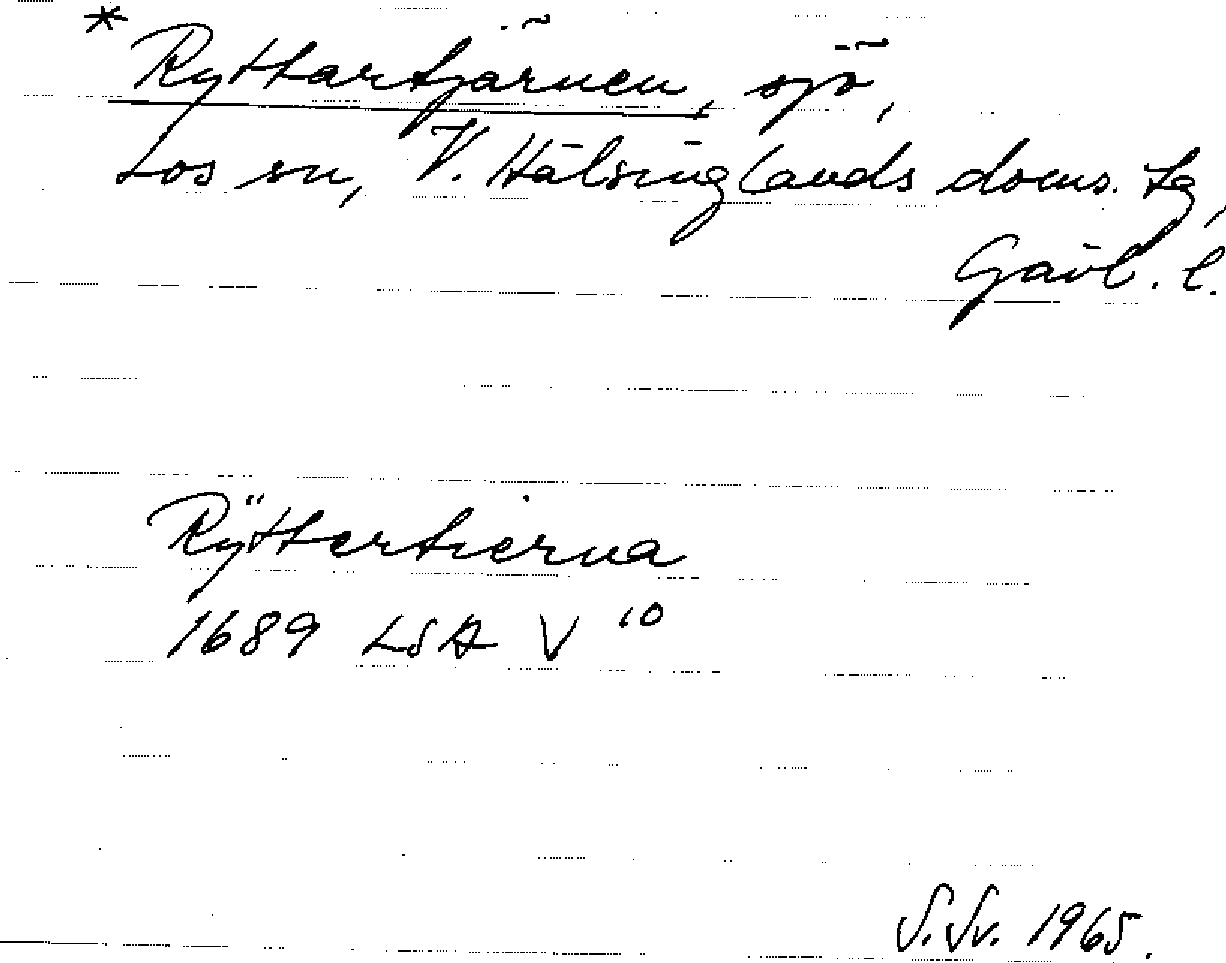 * Ryttartjärnen, sjö,
Los sn, V. Hälsinglands doms. tg,
Gävl. l.
Rÿttertierna
1689 LSA V 10
S.Sv. 1965.